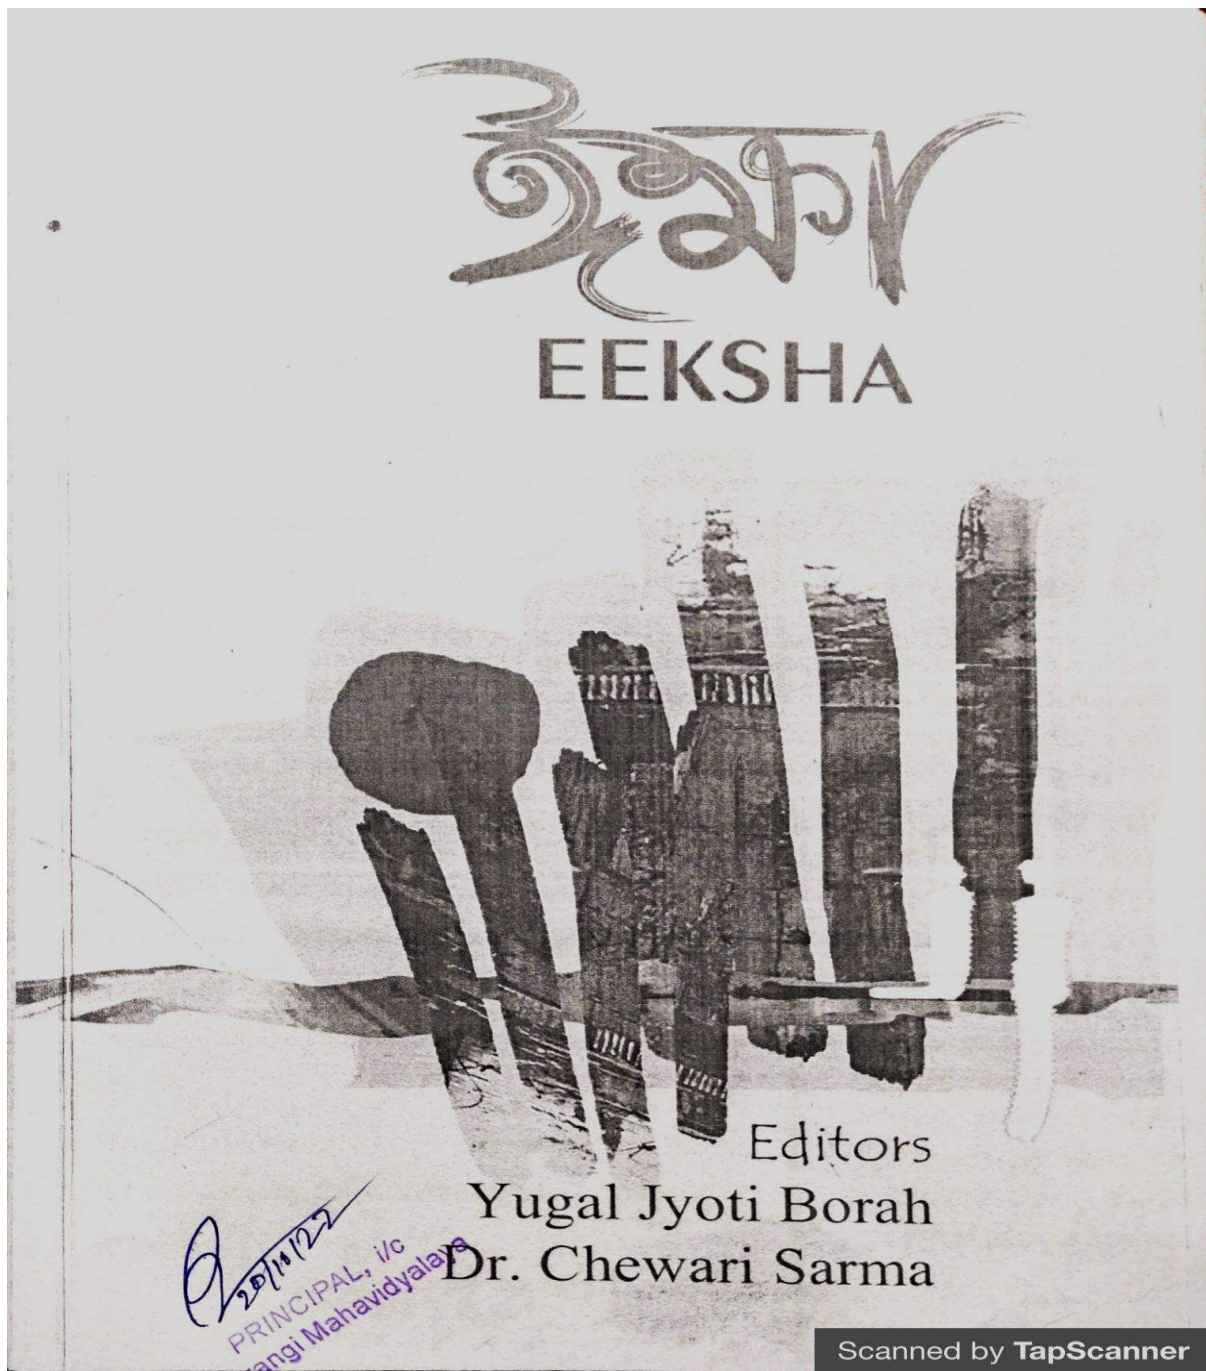 ঈক্ষা
EEKSHA
Editors
Yugal Jyoti Borah
Dr. Chewari Sarma
20/10/22
PRINCIPAL, i/c
Mahavidyalaya
Scanned by TapScanner